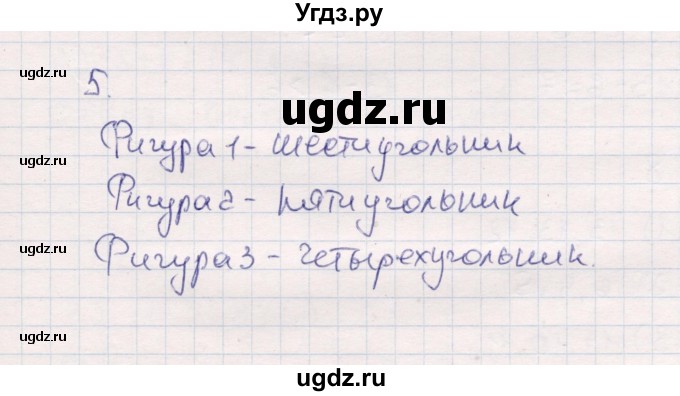 Угдз.ру
ugdz.ru
ugdz.ru
5.
ugdz.ru
Фигура 1 - шестиугольник
Фигура 2 - пятиугольник
Фигура 3 - четырехугольник.
ugdz.ru
ugdz.ru
ugdz.ru
ugdz.ru
ugdz.ru
ugdz.ru